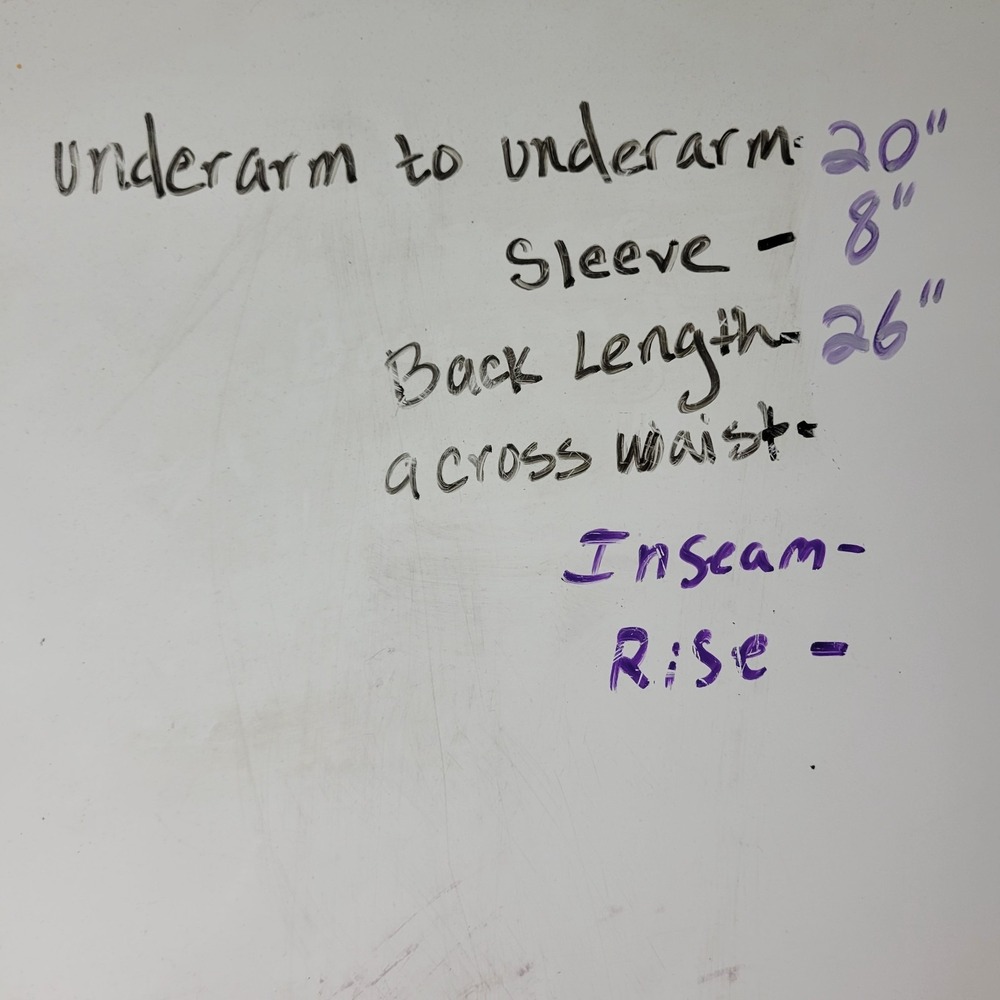 underarm to underarm- 20"
Sleeve - 8"
Back Length- 26"
across waist-
Inseam-
Rise -